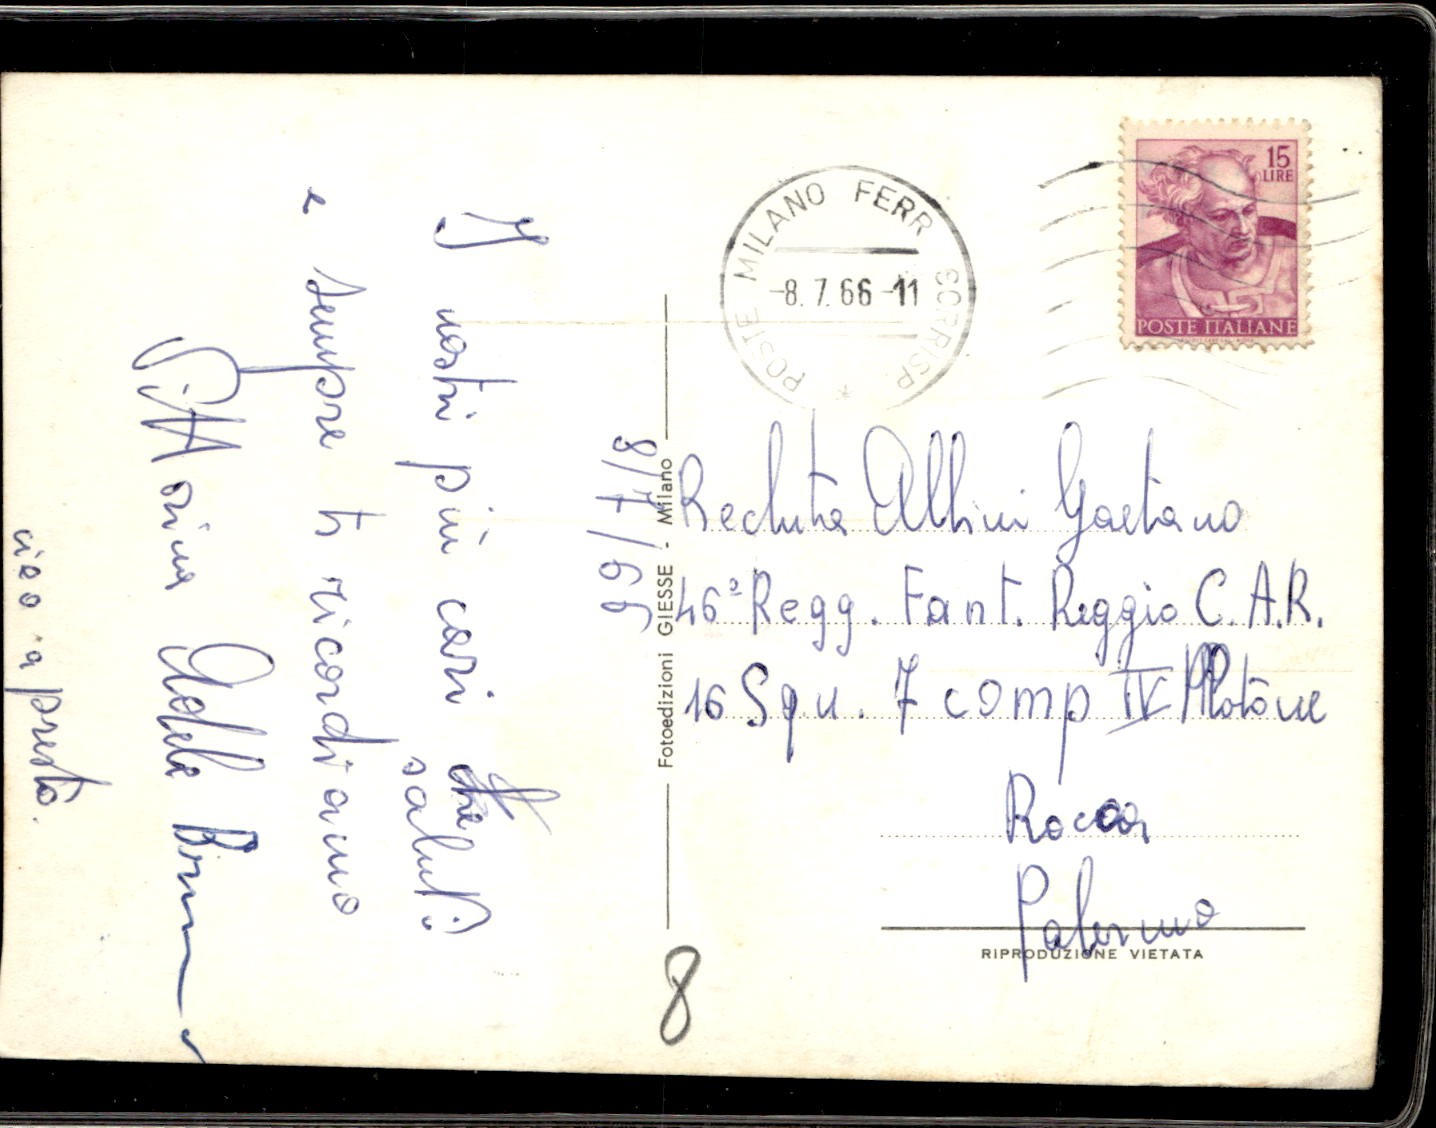 8/7/66
I nostri più cari
saluti
e sempre ti ricordiamo
Vittorina Adele Bruno
ciao a presto.
Fotoedizioni GIESSE - Milano
POSTE MILANO FERR CORRISP. *
-8.7.66-11
15
LIRE
POSTE ITALIANE
Recluta Albini Gaetano
46° Regg. Fant. Reggio C.A.R.
16 Squ. 7 comp IV Plotone
Rocca
Palermo
RIPRODUZIONE VIETATA
8